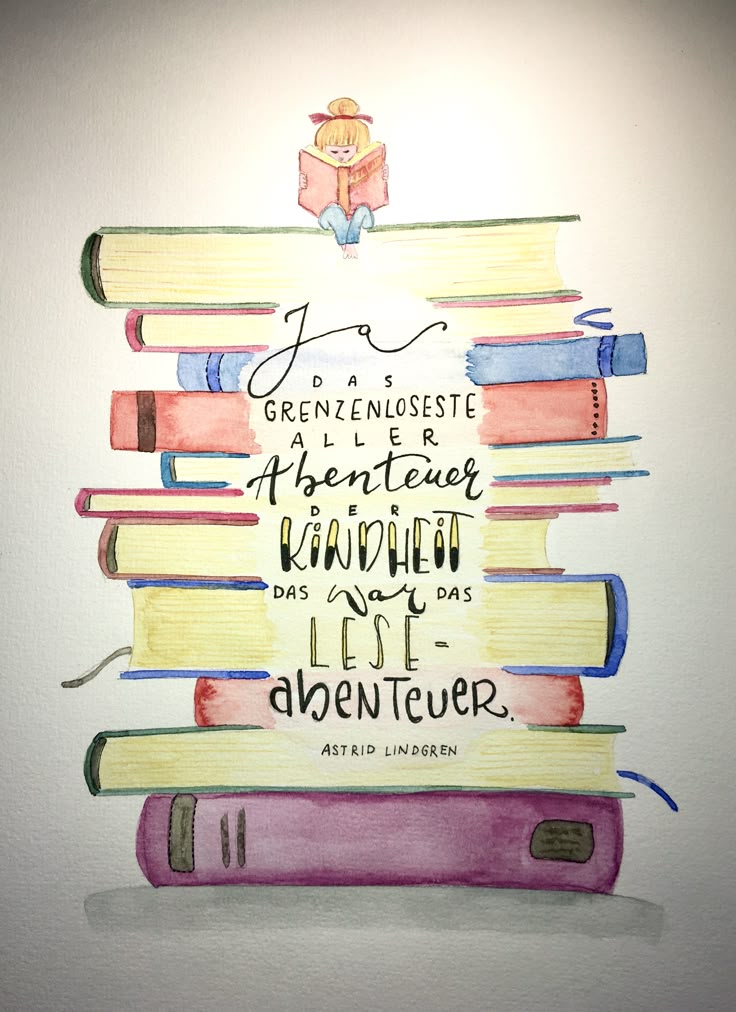 Ja
DAS
GRENZENLOSESTE
ALLER
Abenteuer
DER
KINDHEIT
DAS war DAS
LESE-
abenteuer.
ASTRID LINDGREN